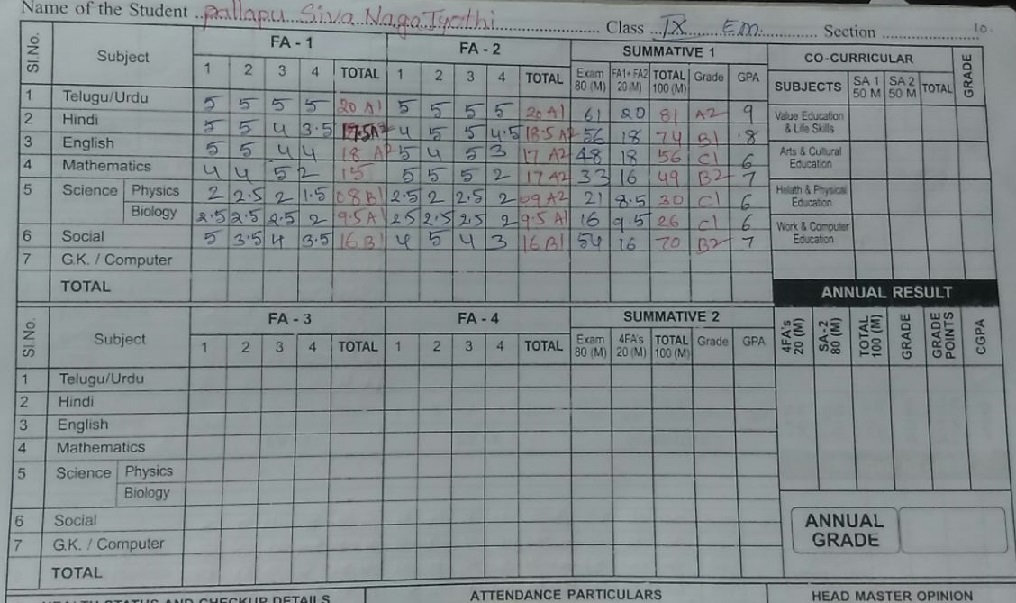 Name of the Student Pallapu Siva Naga Jyothi Class IX EM. Section 10.
Sl.No. Subject FA - 1 FA - 2 SUMMATIVE 1 CO-CURRICULAR GRADE
1 2 3 4 TOTAL 1 2 3 4 TOTAL Exam 80 (M) FA1+FA2 20 (M) TOTAL 100 (M) Grade GPA SUBJECTS SA 1 50 M SA 2 50 M TOTAL
1 Telugu/Urdu 5 5 5 5 20 A1 5 5 5 5 20 A1 61 20 81 A2 9 Value Education & Life Skills
2 Hindi 5 5 4 3.5 17.5 A2 4 5 5 4.5 18.5 A2 56 18 74 B1 8
3 English 5 5 4 4 18 A2 5 4 5 3 17 A2 48 18 56 C1 6 Arts & Cultural Education
4 Mathematics 4 4 5 2 15 5 5 5 2 17 A2 33 16 49 B2 7
5 Science Physics 2 2.5 2 1.5 08 B1 2.5 2 2.5 2 09 A2 21 8.5 30 C1 6 Helath & Physical Education
Biology 2.5 2.5 2.5 2 9.5 A1 2.5 2.5 2.5 2 9.5 A1 16 9 5 26 C1 6 Work & Computer Education
6 Social 5 3.5 4 3.5 16 B1 4 5 4 3 16 B1 54 16 70 B2 7
7 G.K. / Computer
TOTAL ANNUAL RESULT
Sl.No. Subject FA - 3 FA - 4 SUMMATIVE 2 4FA's 20 (M) SA-2 80 (M) TOTAL 100 (M) GRADE GRADE POINTS CGPA
1 2 3 4 TOTAL 1 2 3 4 TOTAL Exam 80 (M) 4FA's 20 (M) TOTAL 100 (M) Grade GPA
1 Telugu/Urdu
2 Hindi
3 English
4 Mathematics
5 Science Physics
Biology
6 Social ANNUAL GRADE
7 G.K. / Computer
TOTAL
HEALTH STATUS AND CHECKUP DETAILS ATTENDANCE PARTICULARS HEAD MASTER OPINION